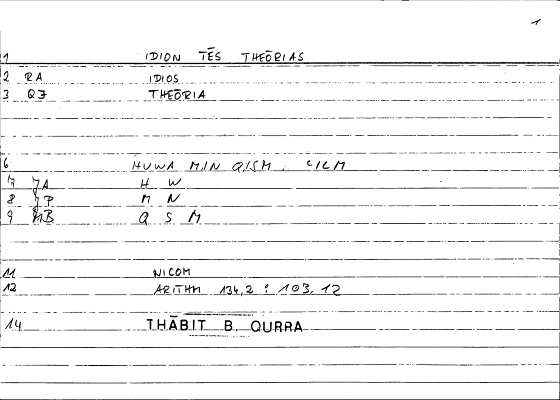 1
1 IDION TĒS THEŌRIAS
2 RA IDIOS
3 QJ THEŌRIA
6 HUWA MIN QISM . ʿILM
7 JA H W
8 JP M N
9 MB Q S M
11 NICOM
12 ARITHM 134,2 : 103,12
14 THĀBIT B. QURRA